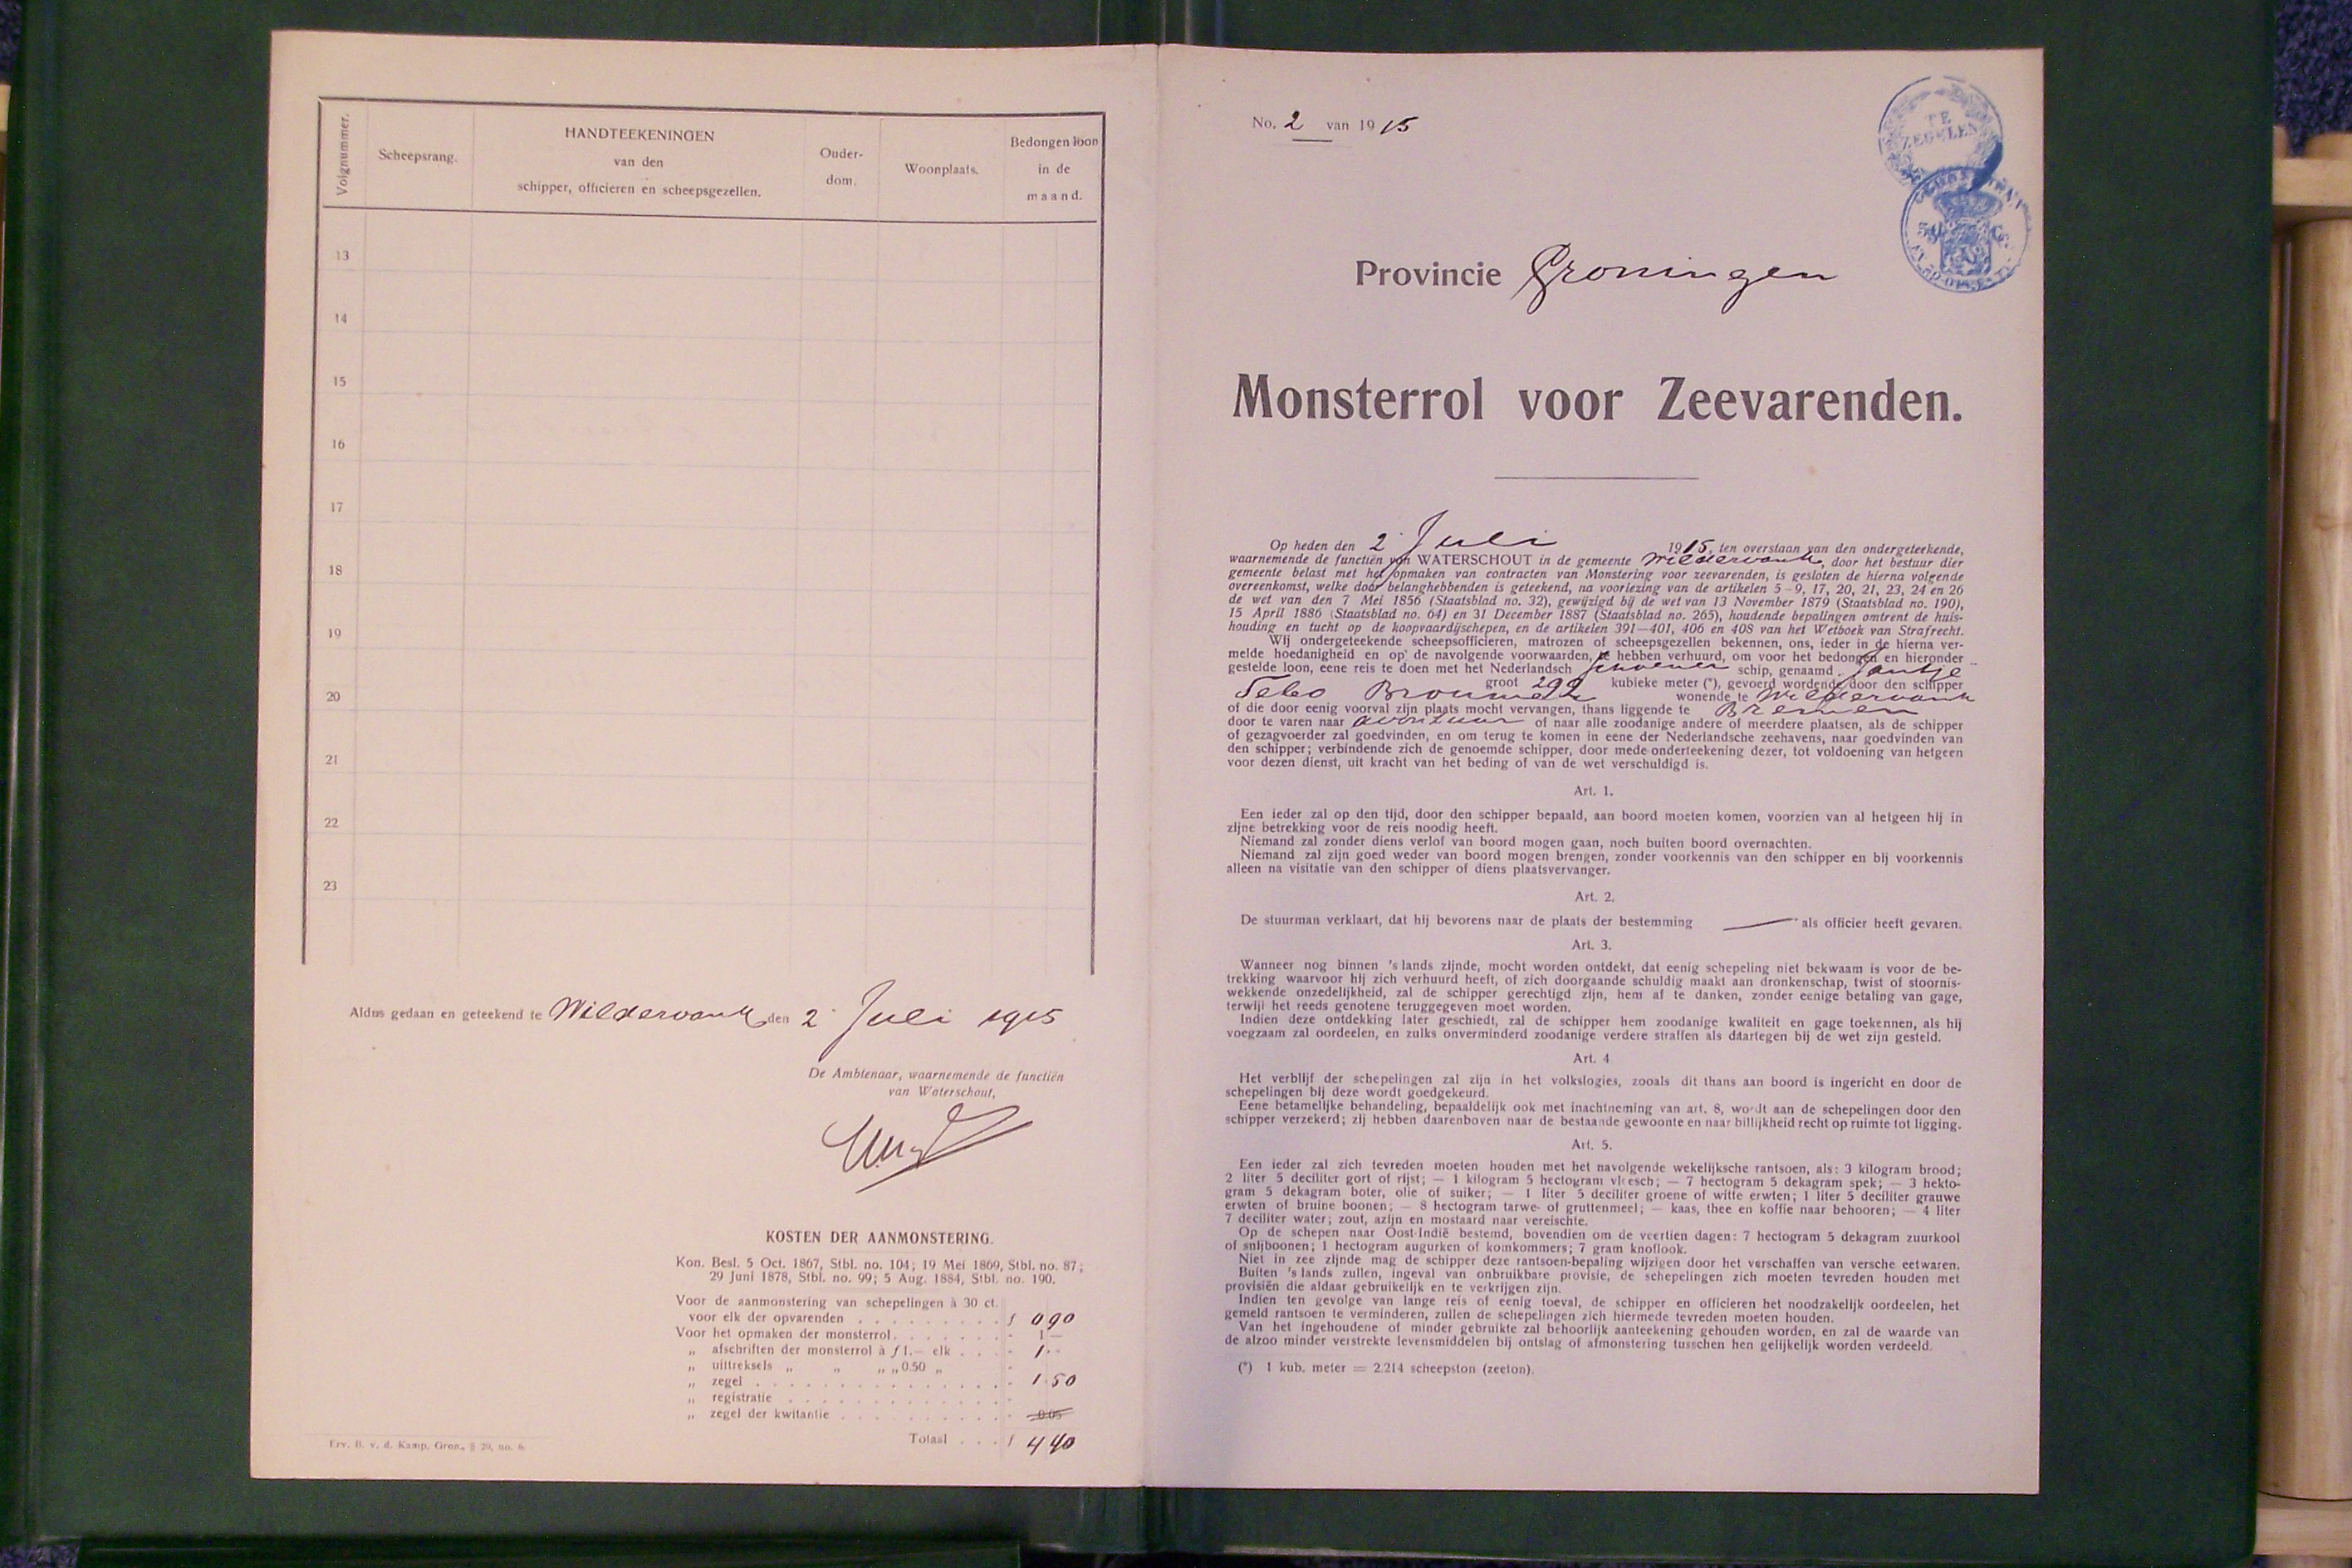 Volgnummer.
Scheepsrang.
HANDTEEKENINGEN
van den
schipper, officieren en scheepsgezellen.
Ouder-
dom.
Woonplaats.
Bedongen loon
in de
maand.
13
14
15
16
17
18
19
20
21
22
23
Aldus gedaan en geteekend te Wildervank den 2 Juli 1915
De Ambtenaar, waarnemende de functiën
van Waterschout,
KOSTEN DER AANMONSTERING.
Kon. Besl. 5 Oct. 1867, Stbl. no. 104; 19 Mei 1869, Stbl. no. 87;
29 Juni 1878, Stbl. no. 99; 5 Aug. 1884, Stbl. no. 190.
Voor de aanmonstering van schepelingen à 30 ct.
voor elk der opvarenden . . . . . . . . . f 0 90
Voor het opmaken der monsterrol . . . . . . - 1 —
„ afschriften der monsterrol à f 1.— elk . . . - 1 -
„ uittreksels „ „ „ „ 0.50 „ -
„ zegel . . . . . . . . . . . . . . - 1.50
„ registratie . . . . . . . . . . . . -
„ zegel der kwitantie . . . . . . . . . . - 0.05
Totaal . . . f 4 40
Erv. B. v. d. Kamp, Gron., § 29, no. 6
No. 2 van 1915
DE
ZEGELEN
Provincie Groningen
Monsterrol voor Zeevarenden.
Op heden den 2 Juli 1915, ten overstaan van den ondergeteekende,
waarnemende de functiën van WATERSCHOUT in de gemeente Wildervank, door het bestuur dier
gemeente belast met het opmaken van contracten van Monstering voor zeevarenden, is gesloten de hierna volgende
overeenkomst, welke door belanghebbenden is geteekend, na voorlezing van de artikelen 5-9, 17, 20, 21, 23, 24 en 26
de wet van den 7 Mei 1856 (Staatsblad no. 32), gewijzigd bij de wet van 13 November 1879 (Staatsblad no. 190),
15 April 1886 (Staatsblad no. 64) en 31 December 1887 (Staatsblad no. 265), houdende bepalingen omtrent de huis-
houding en tucht op de koopvaardijschepen, en de artikelen 391—401, 406 en 408 van het Wetboek van Strafrecht.
Wij ondergeteekende scheepsofficieren, matrozen of scheepsgezellen bekennen, ons, ieder in de hierna ver-
melde hoedanigheid en op de navolgende voorwaarden, te hebben verhuurd, om voor het bedongen en hieronder
gestelde loon, eene reis te doen met het Nederlandsch schoener schip, genaamd Jantje
groot 292 kubieke meter (*), gevoerd wordende door den schipper
Tebo Brouwer wonende te Wildervank
of die door eenig voorval zijn plaats mocht vervangen, thans liggende te Bremen
door te varen naar avontuur of naar alle zoodanige andere of meerdere plaatsen, als de schipper
of gezagvoerder zal goedvinden, en om terug te komen in eene der Nederlandsche zeehavens, naar goedvinden van
den schipper; verbindende zich de genoemde schipper, door mede-onderteekening dezer, tot voldoening van hetgeen
voor dezen dienst, uit kracht van het beding of van de wet verschuldigd is.
Art. 1.
Een ieder zal op den tijd, door den schipper bepaald, aan boord moeten komen, voorzien van al hetgeen hij in
zijne betrekking voor de reis noodig heeft.
Niemand zal zonder diens verlof van boord mogen gaan, noch buiten boord overnachten.
Niemand zal zijn goed weder van boord mogen brengen, zonder voorkennis van den schipper en bij voorkennis
alleen na visitatie van den schipper of diens plaatsvervanger.
Art. 2.
De stuurman verklaart, dat hij bevorens naar de plaats der bestemming — als officier heeft gevaren.
Art. 3.
Wanneer nog binnen 's lands zijnde, mocht worden ontdekt, dat eenig schepeling niet bekwaam is voor de be-
trekking waarvoor hij zich verhuurd heeft, of zich doorgaande schuldig maakt aan dronkenschap, twist of stoornis-
wekkende onzedelijkheid, zal de schipper gerechtigd zijn, hem af te danken, zonder eenige betaling van gage,
terwijl het reeds genotene teruggegeven moet worden.
Indien deze ontdekking later geschiedt, zal de schipper hem zoodanige kwaliteit en gage toekennen, als hij
voegzaam zal oordeelen, en zulks onverminderd zoodanige verdere straffen als daartegen bij de wet zijn gesteld.
Art. 4
Het verblijf der schepelingen zal zijn in het volkslogies, zooals dit thans aan boord is ingericht en door de
schepelingen bij deze wordt goedgekeurd.
Eene betamelijke behandeling, bepaaldelijk ook met inachtneming van art. 8, wordt aan de schepelingen door den
schipper verzekerd; zij hebben daarenboven naar de bestaande gewoonte en naar billijkheid recht op ruimte tot ligging.
Art. 5.
Een ieder zal zich tevreden moeten houden met het navolgende wekelijksche rantsoen, als: 3 kilogram brood;
2 liter 5 deciliter gort of rijst; — 1 kilogram 5 hectogram vleesch; — 7 hectogram 5 dekagram spek; — 3 hekto-
gram 5 dekagram boter, olie of suiker; — 1 liter 5 deciliter groene of witte erwten; 1 liter 5 deciliter grauwe
erwten of bruine boonen; — 8 hectogram tarwe- of gruttenmeel; — kaas, thee en koffie naar behooren; — 4 liter
7 deciliter water; zout, azijn en mostaard naar vereischte.
Op de schepen naar Oost-Indië bestemd, bovendien om de veertien dagen: 7 hectogram 5 dekagram zuurkool
of snijboonen; 1 hectogram augurken of komkommers; 7 gram knoflook.
Niet in zee zijnde mag de schipper deze rantsoen-bepaling wijzigen door het verschaffen van versche eetwaren.
Buiten 's lands zullen, ingeval van onbruikbare provisie, de schepelingen zich moeten tevreden houden met
provisiën die aldaar gebruikelijk en te verkrijgen zijn.
Indien ten gevolge van lange reis of eenig toeval, de schipper en officieren het noodzakelijk oordeelen, het
gemeld rantsoen te verminderen, zullen de schepelingen zich hiermede tevreden moeten houden.
Van het ingehoudene of minder gebruikte zal behoorlijk aanteekening gehouden worden, en zal de waarde van
de alzoo minder verstrekte levensmiddelen bij ontslag of afmonstering tusschen hen gelijkelijk worden verdeeld.
(*) 1 kub. meter = 2.214 scheepston (zeeton).